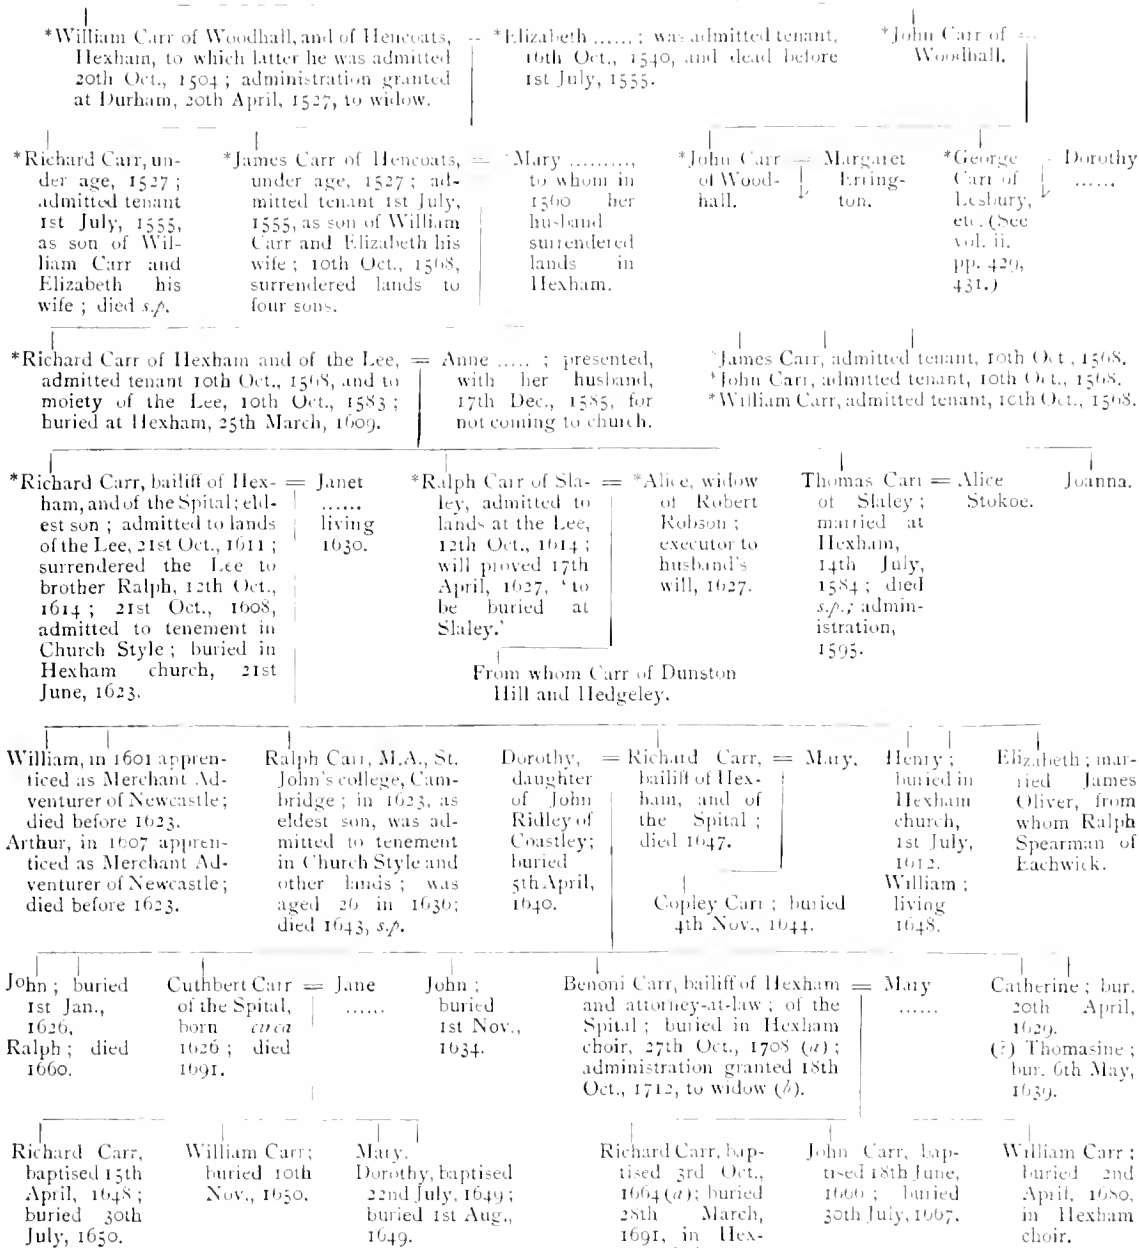 *William Carr of Woodhall, and of Hencoats,
Hexham, to which latter he was admitted
20th Oct., 1504; administration granted
at Durham, 20th April, 1527, to widow.
*Elizabeth ......; was admitted tenant,
16th Oct., 1540, and dead before
1st July, 1555.
*John Carr of =
Woodhall.
*Richard Carr, un-
der age, 1527;
admitted tenant
1st July, 1555,
as son of Wil-
liam Carr and
Elizabeth his
wife; died s.p.
*James Carr of Hencoats, =
under age, 1527; ad-
mitted tenant 1st July,
1555, as son of William
Carr and Elizabeth his
wife; 10th Oct., 1568,
surrendered lands to
four sons.
Mary .........,
to whom in
1560 her
husband
surrendered
lands in
Hexham.
*John Carr =
of Wood-
hall.
Margaret
Erring-
ton.
*George
Carr of
Lesbury,
etc. (See
vol. ii.
pp. 429,
431.)
Dorothy
......
*Richard Carr of Hexham and of the Lee, =
admitted tenant 10th Oct., 1568, and to
moiety of the Lee, 10th Oct., 1583;
buried at Hexham, 25th March, 1609.
Anne .....; presented,
with her husband,
17th Dec., 1585, for
not coming to church.
*James Carr, admitted tenant, 10th Oct., 1568.
*John Carr, admitted tenant, 10th Oct., 1568.
*William Carr, admitted tenant, 10th Oct., 1568.
*Richard Carr, bailiff of Hex- =
ham, and of the Spital; eld-
est son; admitted to lands
of the Lee, 21st Oct., 1611;
surrendered the Lee to
brother Ralph, 12th Oct.,
1614; 21st Oct., 1608,
admitted to tenement in
Church Style; buried in
Hexham church, 21st
June, 1623.
Janet
......
living
1630.
*Ralph Carr of Sla- =
ley, admitted to
lands at the Lee,
12th Oct., 1614;
will proved 17th
April, 1627, 'to
be buried at
Slaley.'
*Alice, widow
of Robert
Robson;
executor to
husband's
will, 1627.
Thomas Carr =
of Slaley;
married at
Hexham,
14th July,
1584; died
s.p.; admin-
istration,
1595.
Alice
Stokoe.
Joanna.
From whom Carr of Dunston
Hill and Hedgeley.
William, in 1601 appren-
ticed as Merchant Ad-
venturer of Newcastle;
died before 1623.
Arthur, in 1607 appren-
ticed as Merchant Ad-
venturer of Newcastle;
died before 1623.
Ralph Carr, M.A., St.
John's college, Cam-
bridge; in 1623, as
eldest son, was ad-
mitted to tenement
in Church Style and
other lands; was
aged 26 in 1636;
died 1643, s.p.
Dorothy, =
daughter
of John
Ridley of
Coastley;
buried
5th April,
1640.
Richard Carr, =
bailiff of Hex-
ham, and of
the Spital;
died 1647.
Mary.
Copley Carr; buried
4th Nov., 1644.
Henry;
buried in
Hexham
church,
1st July,
1612.
William;
living
1648.
Elizabeth; mar-
ried James
Oliver, from
whom Ralph
Spearman of
Eachwick.
John; buried
1st Jan.,
1626.
Ralph; died
1660.
Cuthbert Carr =
of the Spital,
born circa
1626; died
1691.
Jane
......
John;
buried
1st Nov.,
1634.
Benoni Carr, bailiff of Hexham =
and attorney-at-law; of the
Spital; buried in Hexham
choir, 27th Oct., 1708 (a);
administration granted 18th
Oct., 1712, to widow (b).
Mary
......
Catherine; bur.
20th April,
1629.
(?) Thomasine;
bur. 6th May,
1639.
Richard Carr,
baptised 15th
April, 1648;
buried 30th
July, 1650.
William Carr;
buried 10th
Nov., 1650.
Mary.
Dorothy, baptised
22nd July, 1649;
buried 1st Aug.,
1649.
Richard Carr, bap-
tised 3rd Oct.,
1664 (a); buried
28th March,
1691, in Hex-
John Carr, bap-
tised 18th June,
1666; buried
30th July, 1667.
William Carr;
buried 2nd
April, 1680,
in Hexham
choir.